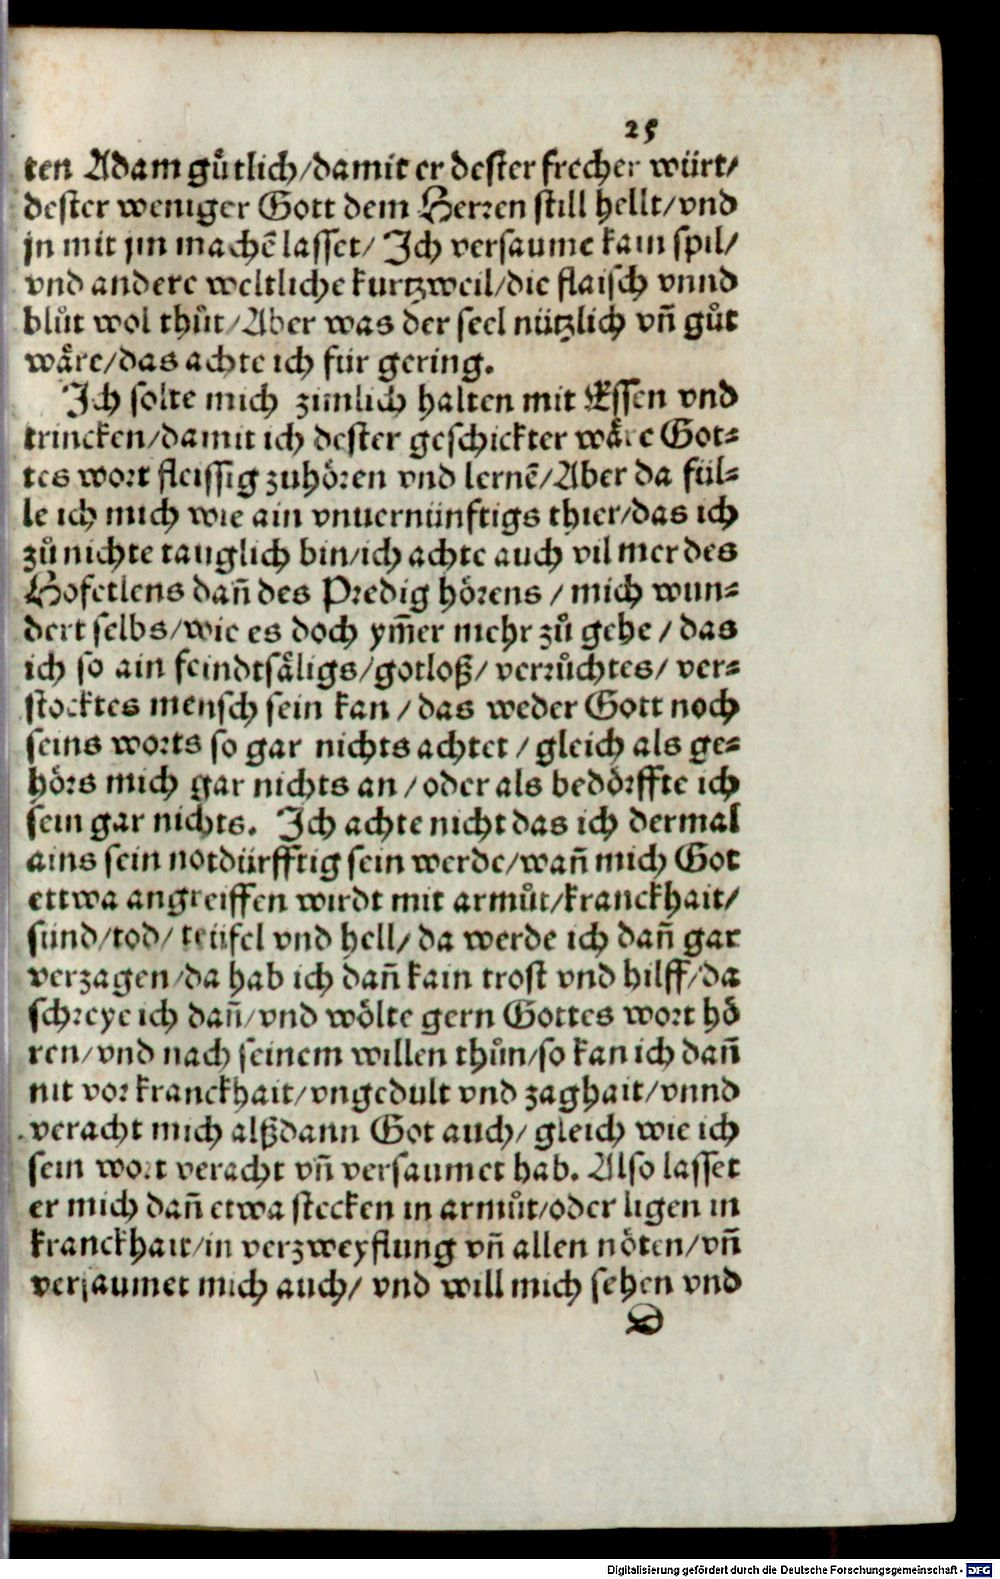 25
ten Adam guͤtlich/damit er dester frecher würt/
dester weniger Gott dem Herren still hellt/vnd
jn mit jm machẽ lasset/ Ich versaume kain spil/
vnd andere weltliche kurtzweil/die flaisch vnnd
bluͦt wol thuͦt/Aber was der seel nützlich vñ guͦt
waͤre/das achte ich für gering.
Ich solte mich zimlich halten mit Essen vnd
trincken/damit ich dester geschickter waͤre Got⸗
tes wort fleissig zuhoͤren vnd lernẽ/Aber da fül⸗
le ich mich wie ain vnuernünftigs thier/das ich
zuͦ nichte tauglich bin/ich achte auch vil mer des
Hofetlens dañ des Predig hoͤrens / mich wun⸗
dert selbs/wie es doch ym̃er mehr zuͦ gehe / das
ich so ain feindtsaͤligs/gotloß/ verruͦchtes/ ver⸗
stocktes mensch sein kan / das weder Gott noch
seins worts so gar nichts achtet / gleich als ge⸗
hoͤrs mich gar nichts an / oder als bedoͤrffte ich
sein gar nichts. Ich achte nicht das ich dermal
ains sein notdürfftig sein werde/wañ mich Got
ettwa angreiffen wirdt mit armuͦt/kranckhait/
sünd/tod/ teüfel vnd hell/ da werde ich dañ gar
verzagen/da hab ich dañ kain trost vnd hilff/da
schreye ich dañ/vnd woͤlte gern Gottes wort hoͤ
ren/vnd nach seinem willen thuͦn/so kan ich dañ
nit vor kranckhait/vngedult vnd zaghait/vnnd
veracht mich alßdann Got auch/ gleich wie ich
sein wort veracht vñ versaumet hab. Also lasset
er mich dañ etwa stecken in armuͦt/oder ligen in
kranckhait/in verzweyflung vñ allen noͤten/vñ
versaumet mich auch/ vnd will mich sehen vnd
D
Digitalisierung gefördert durch die Deutsche Forschungsgemeinschaft - DFG